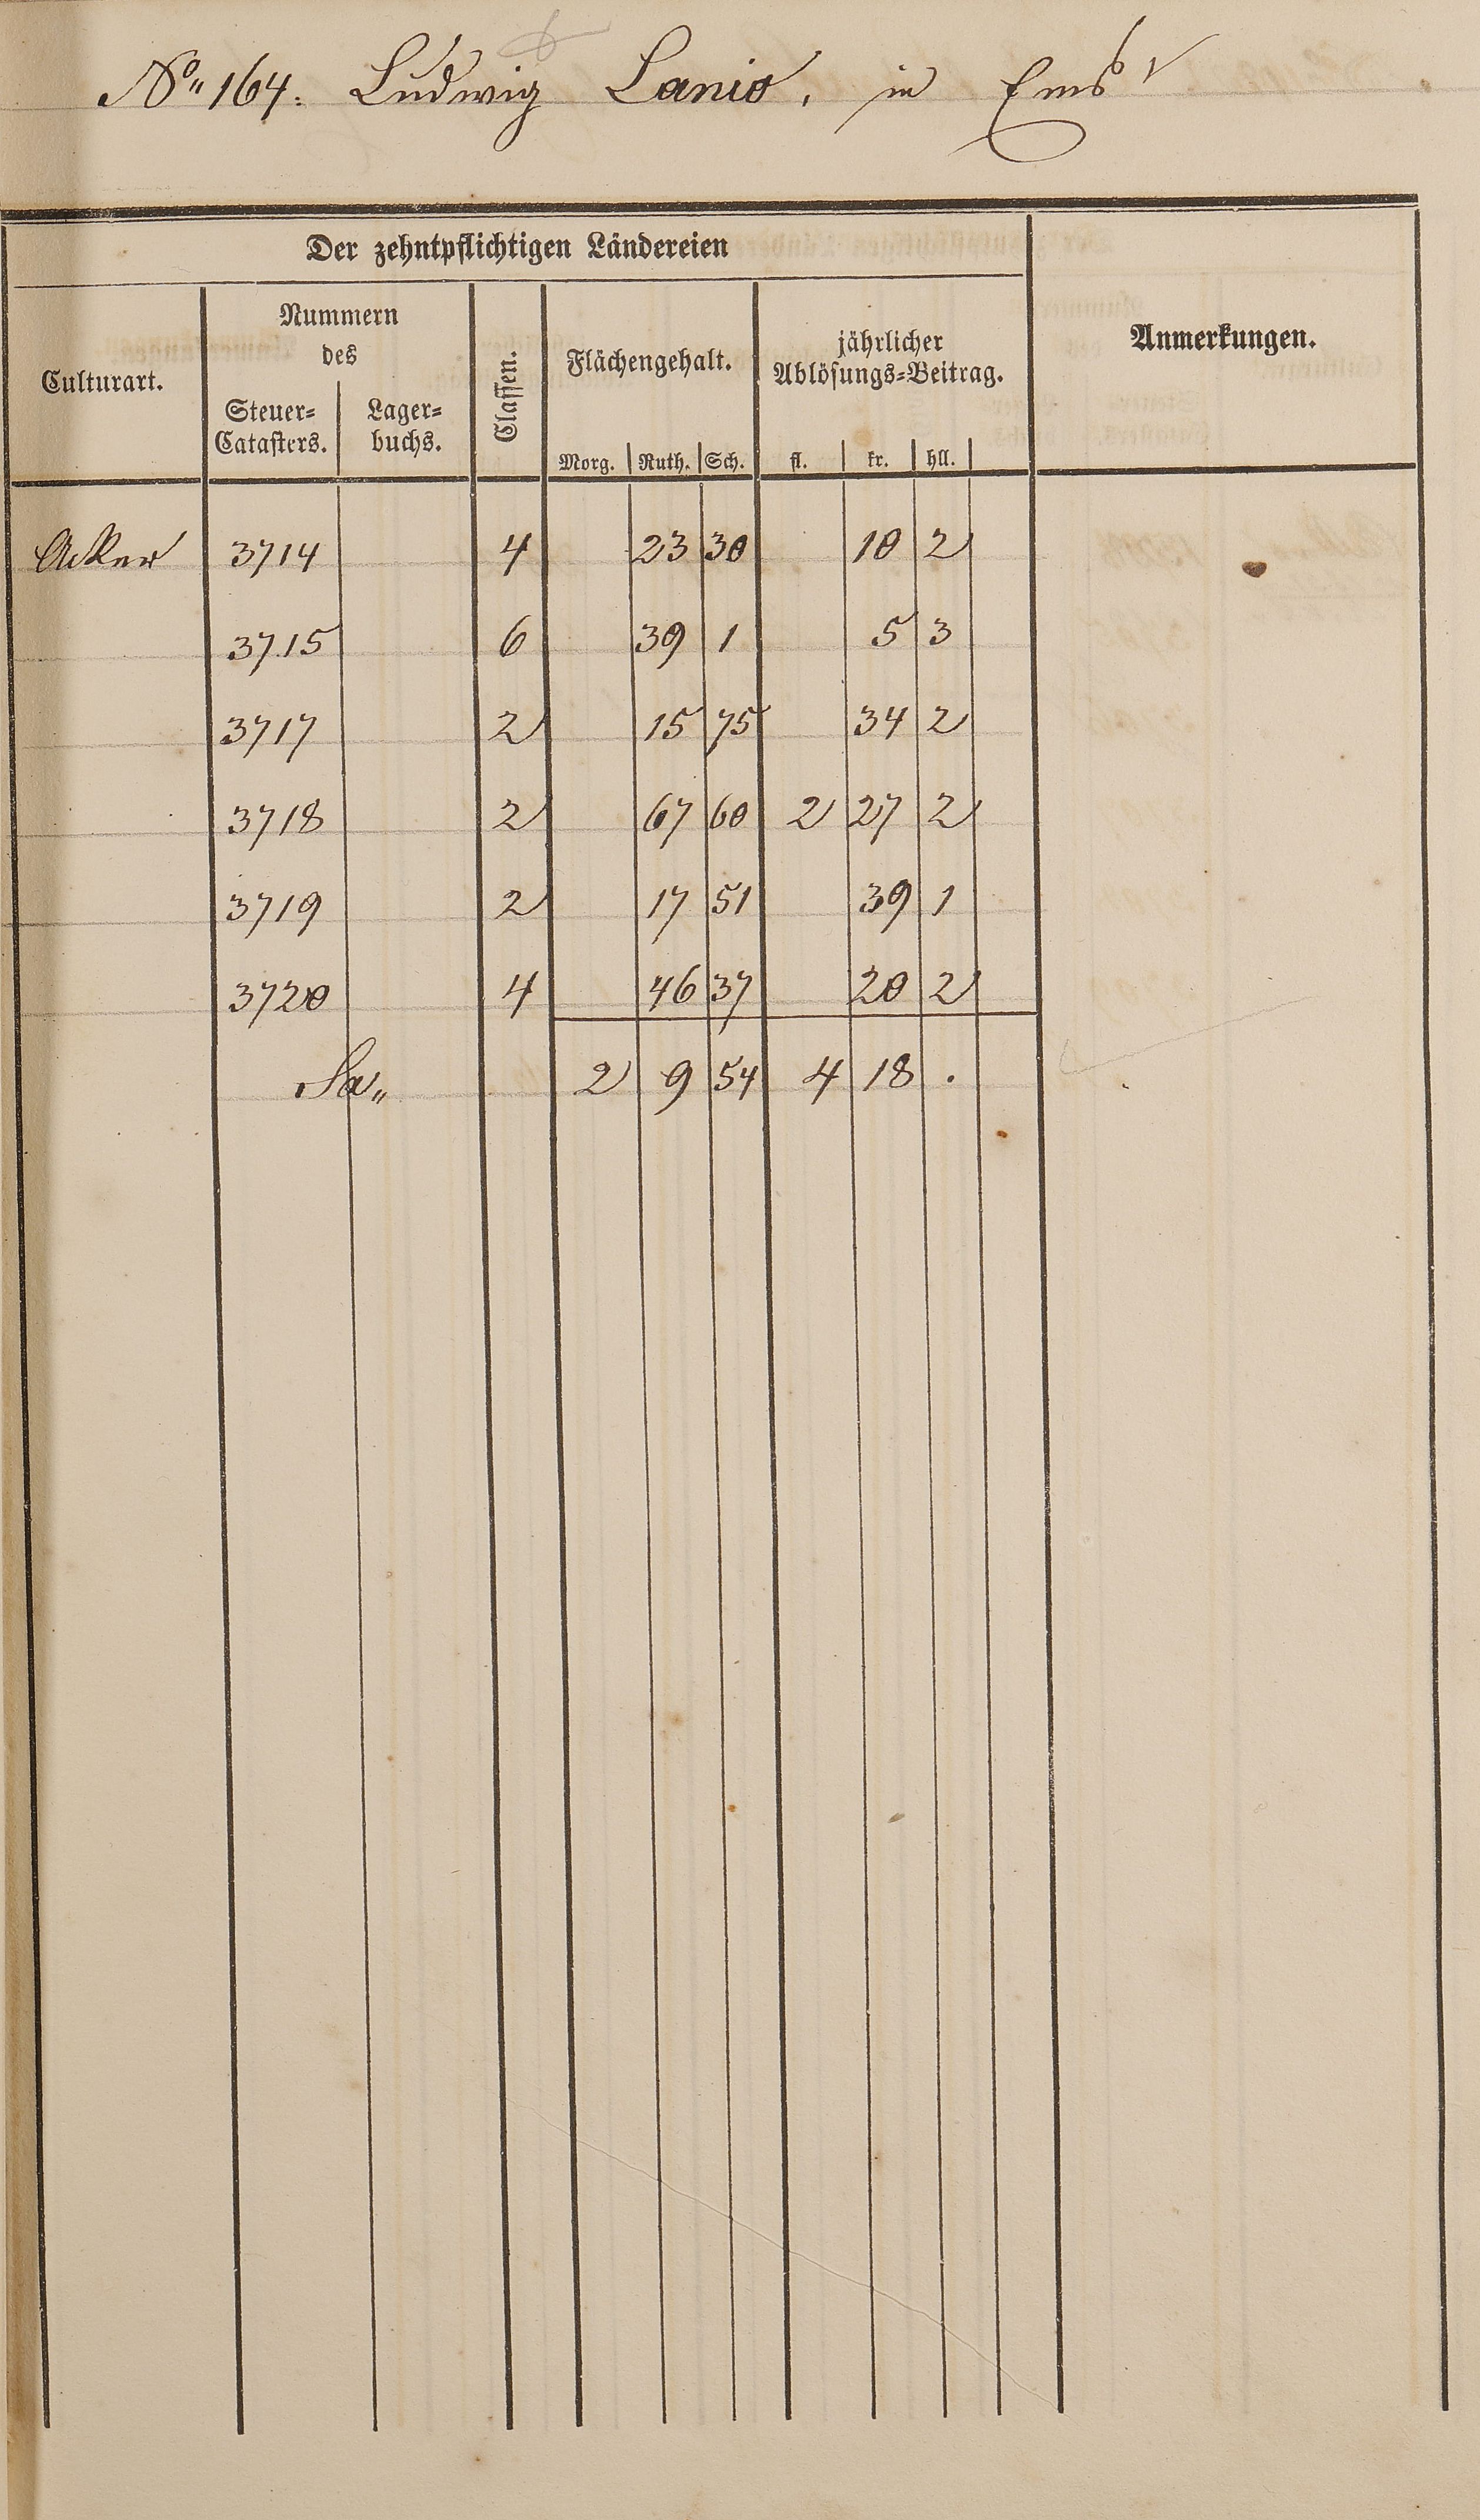 No„ 164. Ludwig Lanio, in Ems
Der zehntpflichtigen Ländereien
Culturart.
Nummern
des
Steuer=
Catasters.
Lager=
buchs.
Classen.
Flächengehalt.
Morg. Ruth. Sch.
jährlicher
Ablösungs=Beitrag.
fl. kr. hll.
Anmerkungen.
Acker 3714 4 23 30 10 2
3715 6 39 1 5 3
3717 2 15 75 34 2
3718 2 67 60 2 27 2
3719 2 17 51 39 1
3720 4 46 37 20 2
Sa„ 2 9 54 4 18 .